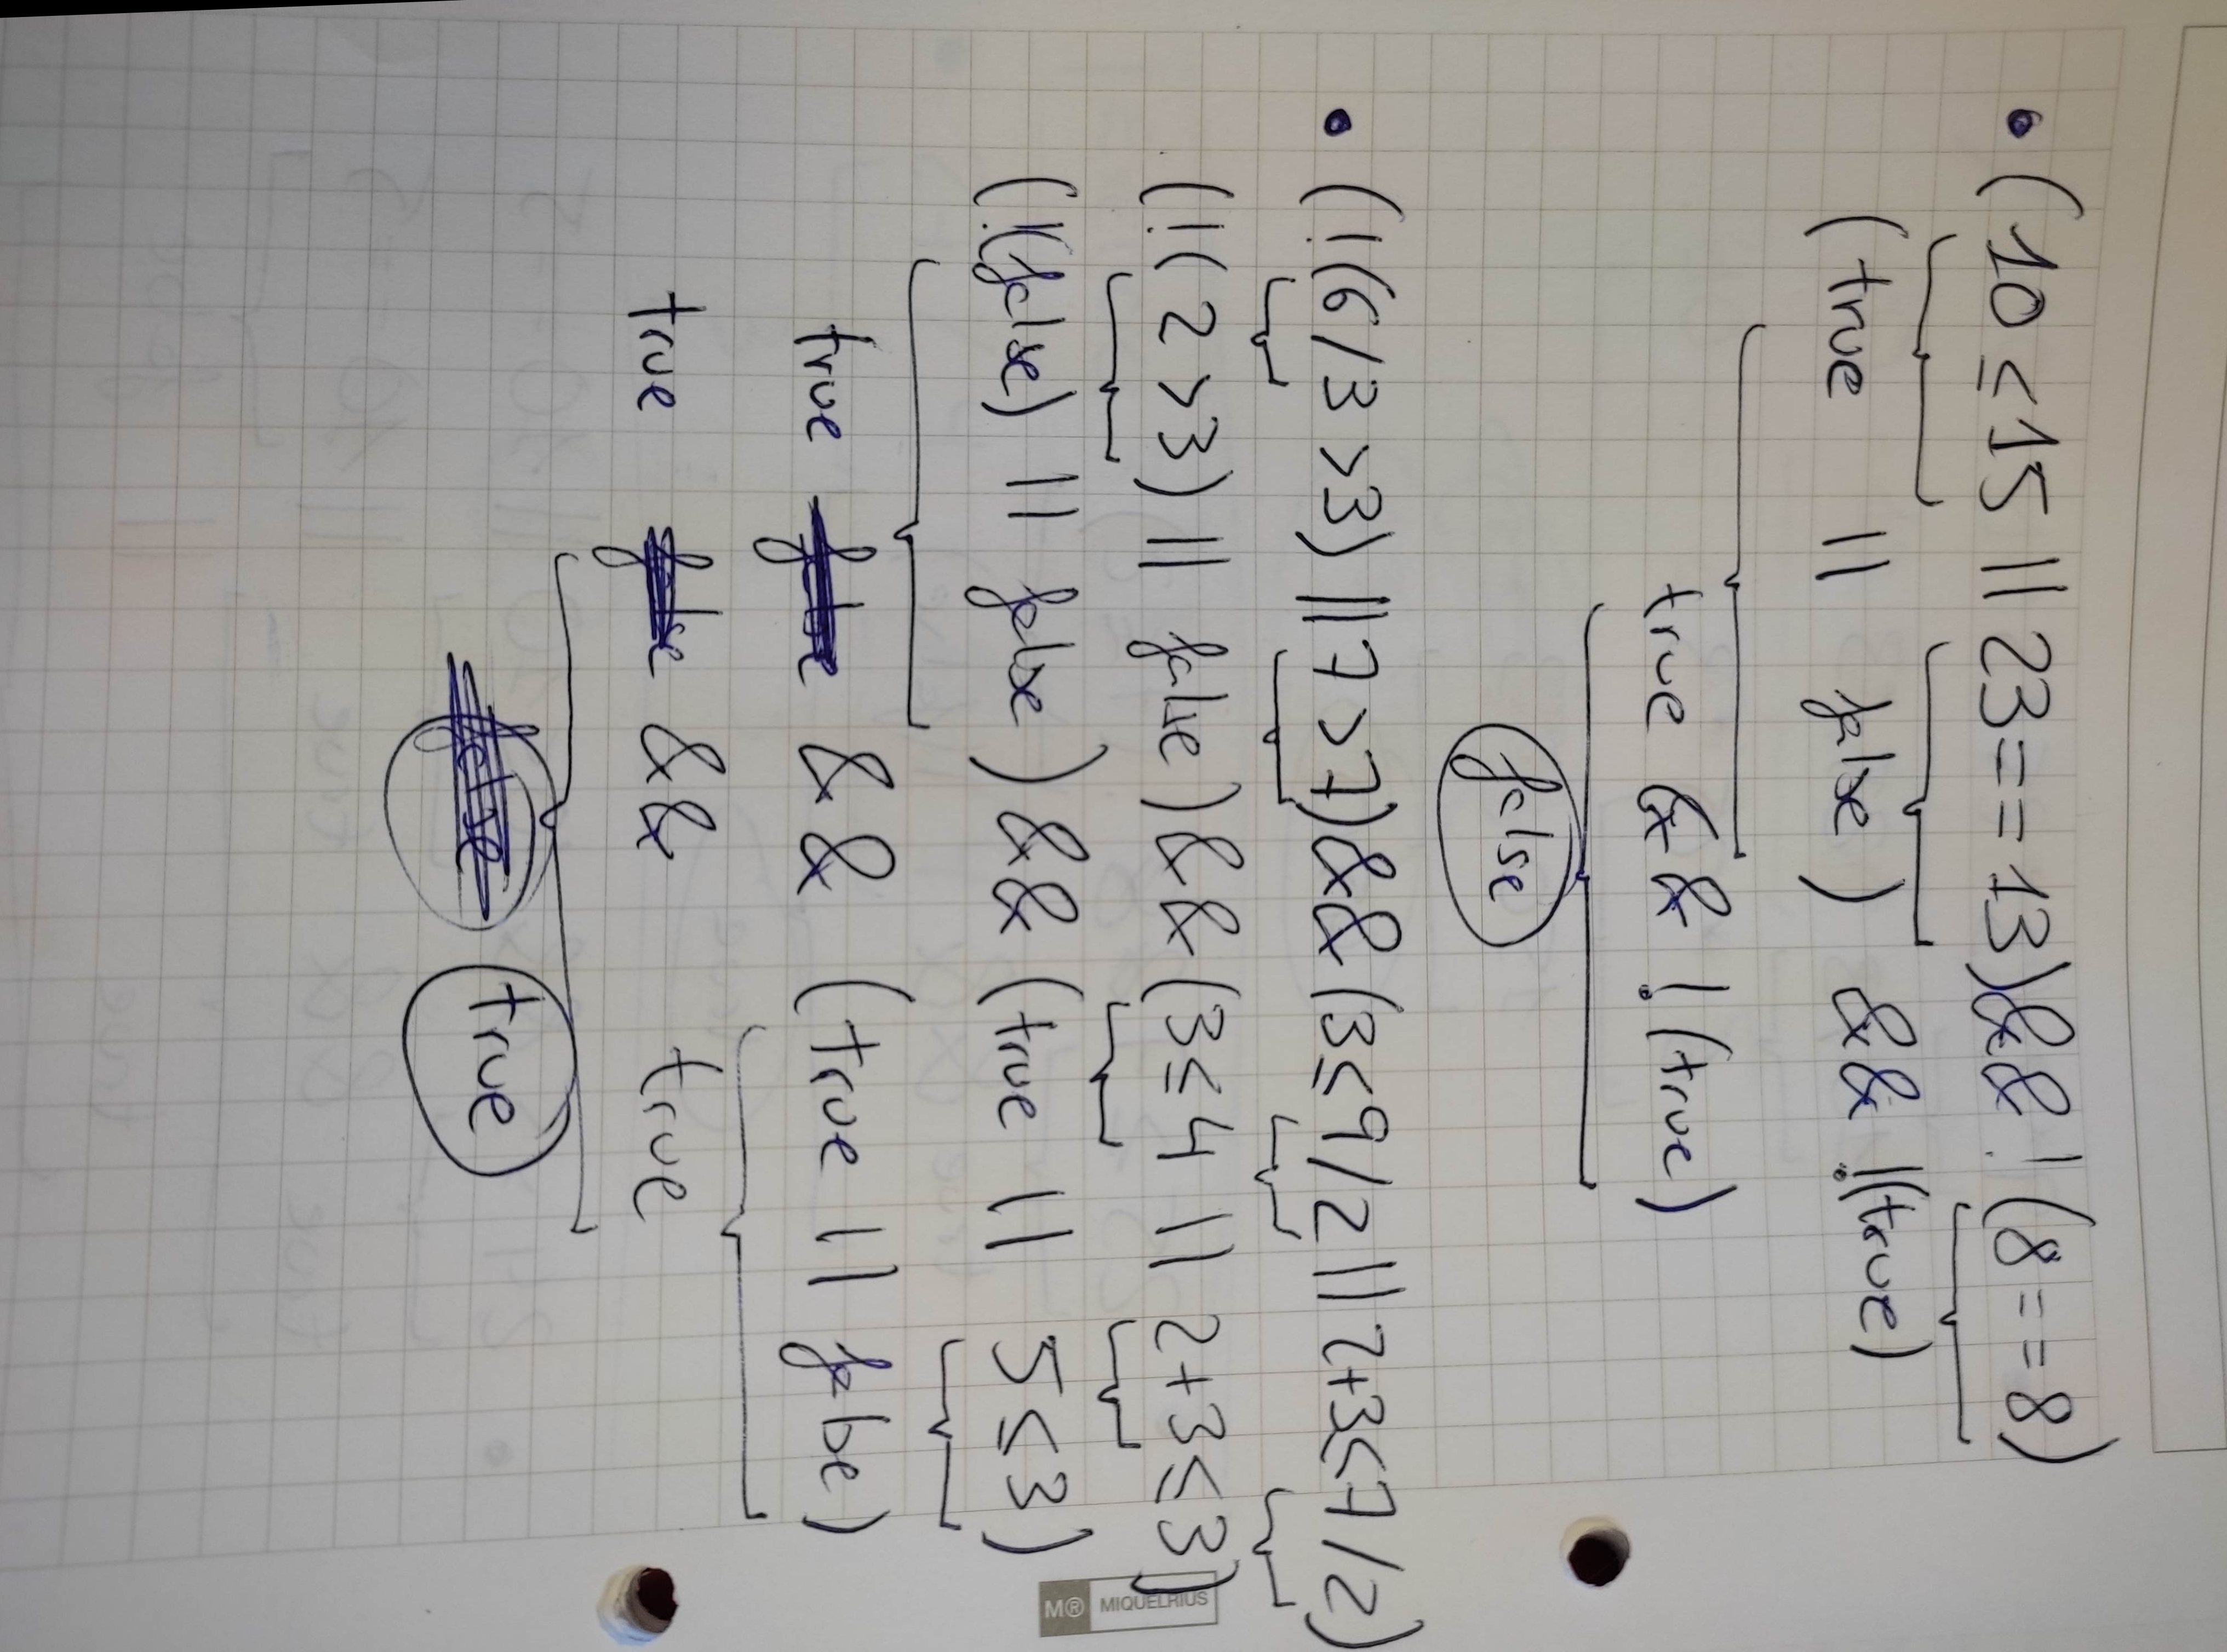 • (10 ≤ 15 || 23 == 13) && ! (8 == 8)
(true || false) && !(true)
true && ! (true)
false
• (! (6/3 > 3) || 7 > 7) && (3 ≤ 9/2 || 2+3 ≤ 7/2)
(! (2 > 3) || false) && (3 ≤ 4 || 2+3 ≤ 3)
(!(false) || false) && (true || 5 ≤ 3)
true false && (true || false)
true false && true
false true
M® MIQUELRIUS